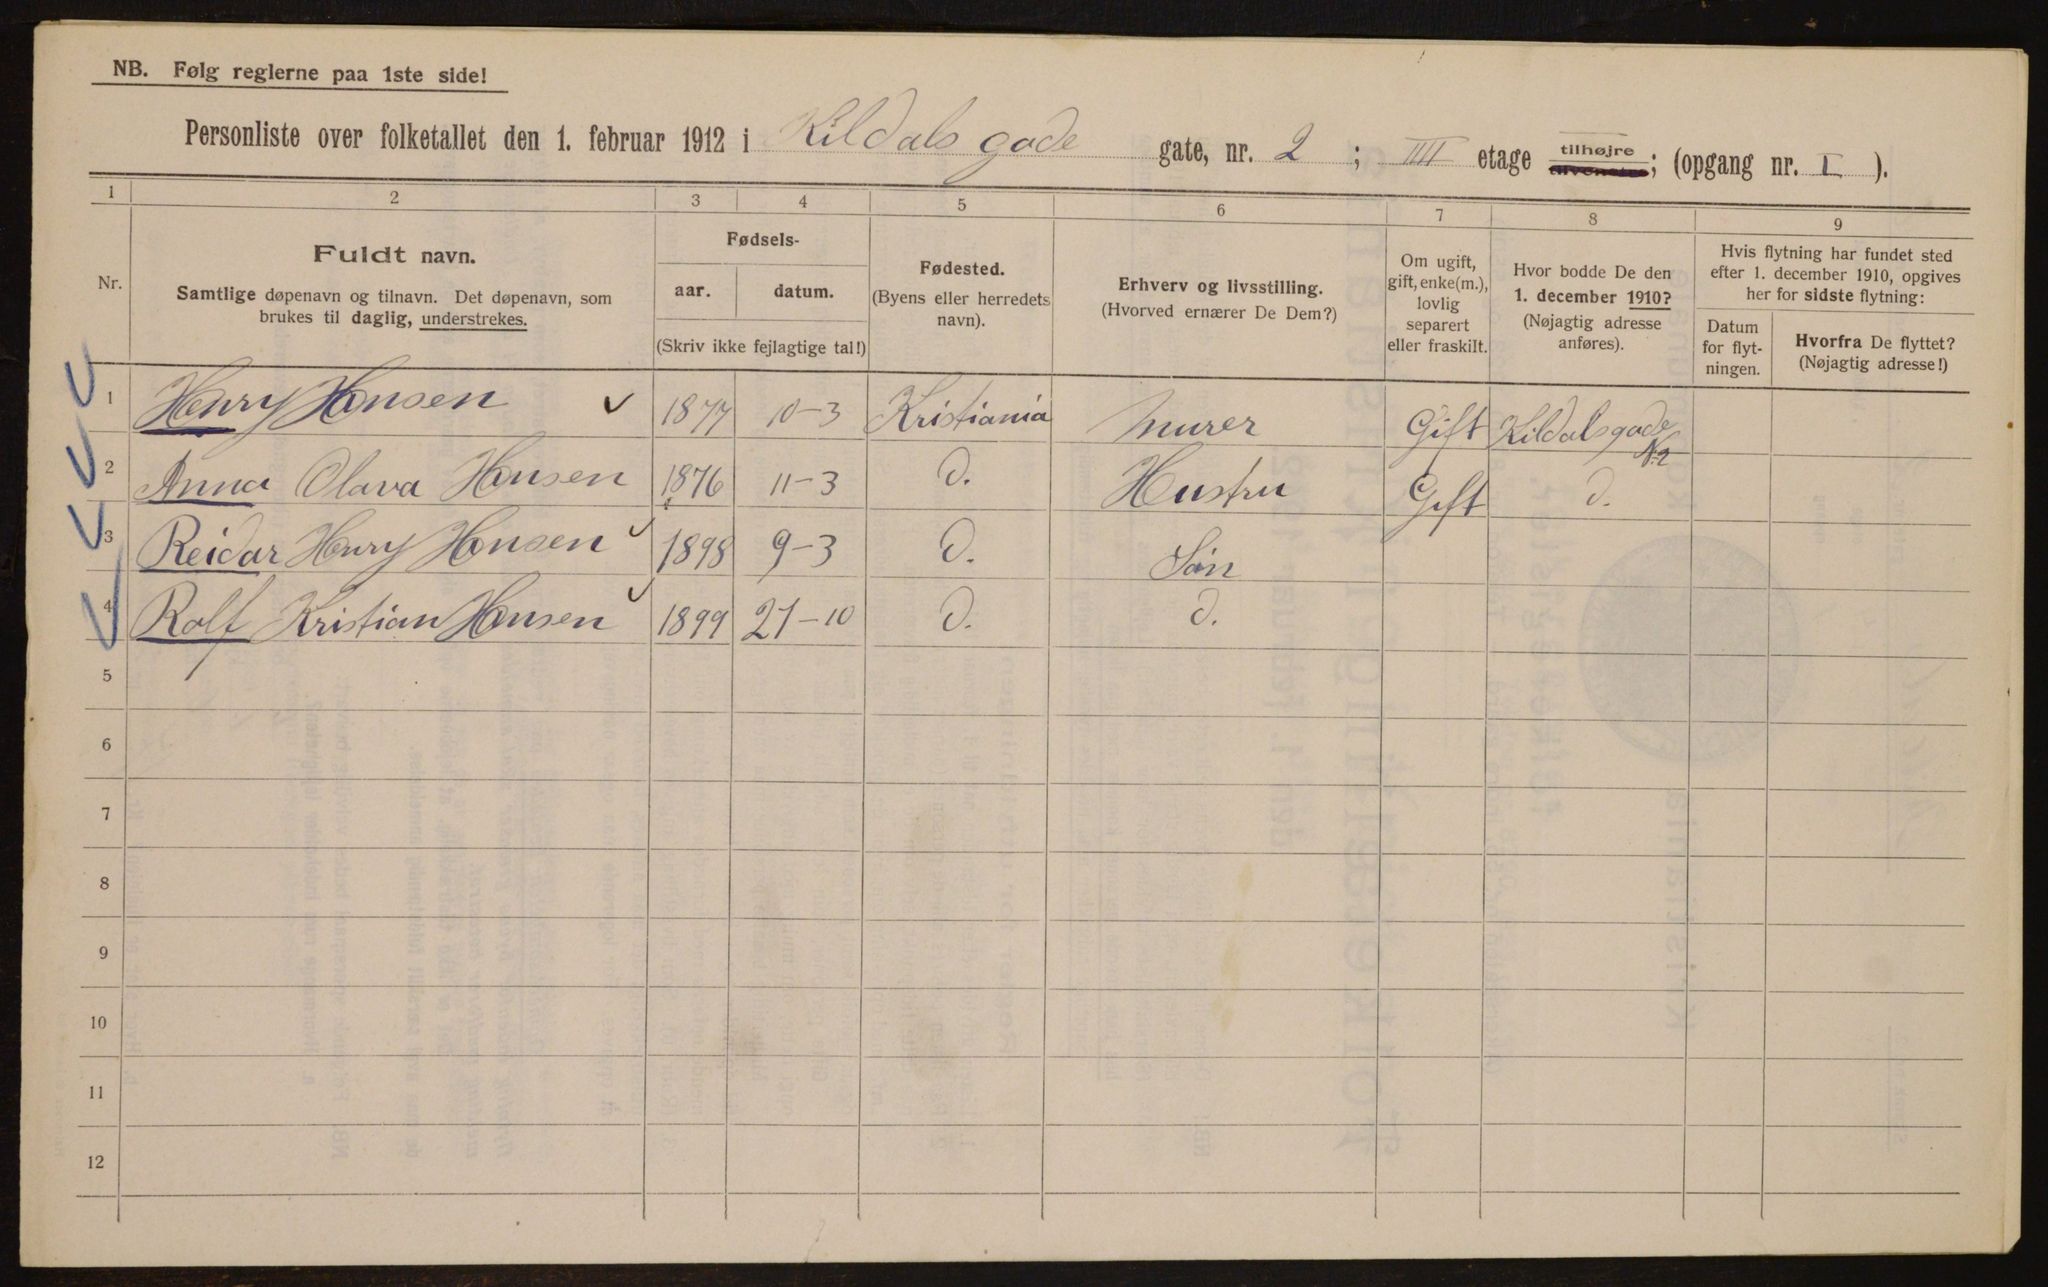 NB. Følg reglerne paa 1ste side!
Personliste over folketallet den 1. februar 1912 i Kildals gade gate, nr. 2 ; IIII etage tilhøjre tilvenstre; (opgang nr. I ).
1 2 3 4 5 6 7 8 9
Nr.
Fuldt navn.
Samtlige døpenavn og tilnavn. Det døpenavn, som
brukes til daglig, understrekes.
Fødsels-
aar. datum.
(Skriv ikke fejlagtige tal!)
Fødested.
(Byens eller herredets
navn).
Erhverv og livsstilling.
(Hvorved ernærer De Dem?)
Om ugift,
gift, enke(m.),
lovlig
separert
eller fraskilt.
Hvor bodde De den
1. december 1910?
(Nøjagtig adresse
anføres).
Hvis flytning har fundet sted
efter 1. december 1910, opgives
her for sidste flytning:
Datum
for flyt-
ningen.
Hvorfra De flyttet?
(Nøjagtig adresse!)
1 Henry Hansen 1877 10-3 Kristiania Murer Gift Kildalsgade
No 2
2 Anna Olava Hansen 1876 11-3 d. Hustru Gift d.
3 Reidar Henry Hansen 1898 9-3 d. Søn
4 Rolf Kristian Hansen 1899 21-10 d. d.
5
6
7
8
9
10
11
12